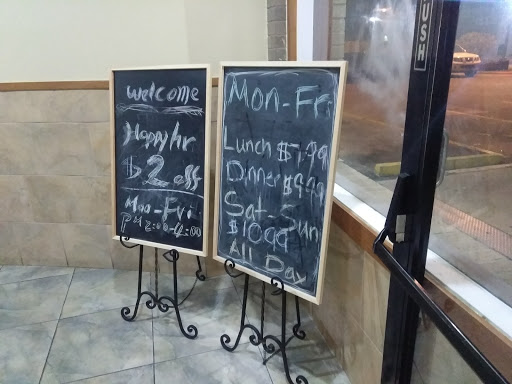 welcome
Happy hr
$2 off
Mon-Fri
PM 2:00-4:00
Mon-Fri
Lunch $7.99
Dinner $9.99
Sat-Sun
$10.99
All Day
PUSH